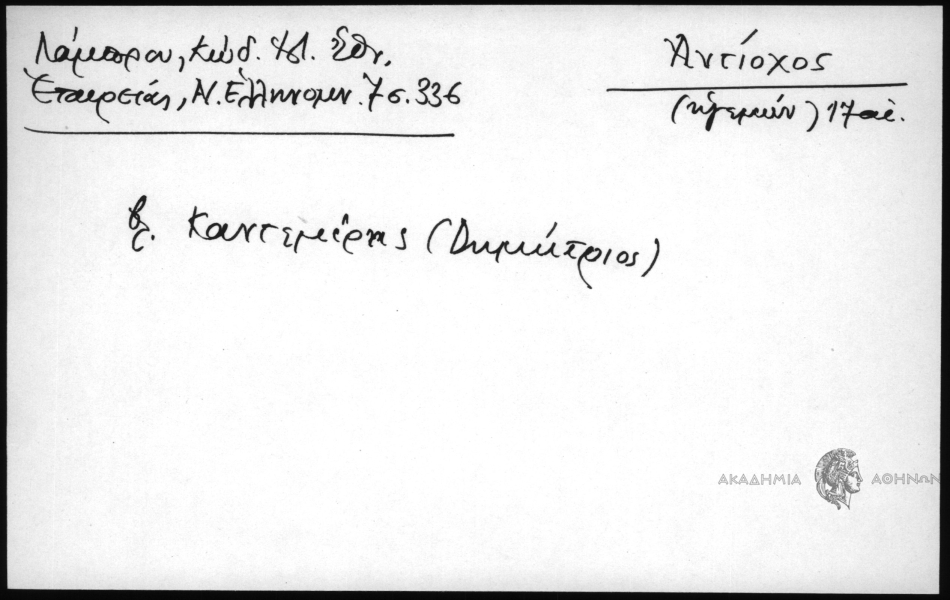 Λάμπρου, Κώδ. Ἱστ. Ἐθν.
Ἑταιρείας, Ν. Ἑλληνομν. 7 σ. 336
Ἀντίοχος
(ἡγεμών) 17 αἰ.
βλ. Καντεμίρης (Δημήτριος)
ΑΚΑΔΗΜΙΑ ΑΘΗΝΩΝ